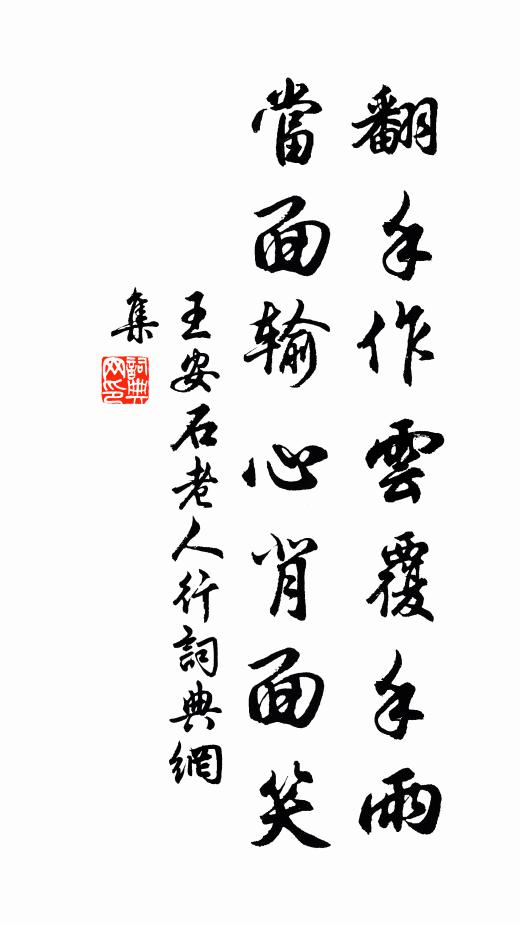 翻手作雲覆手雨
當面輸心背面笑
王安石老人行詞典網
集
詞典
网印